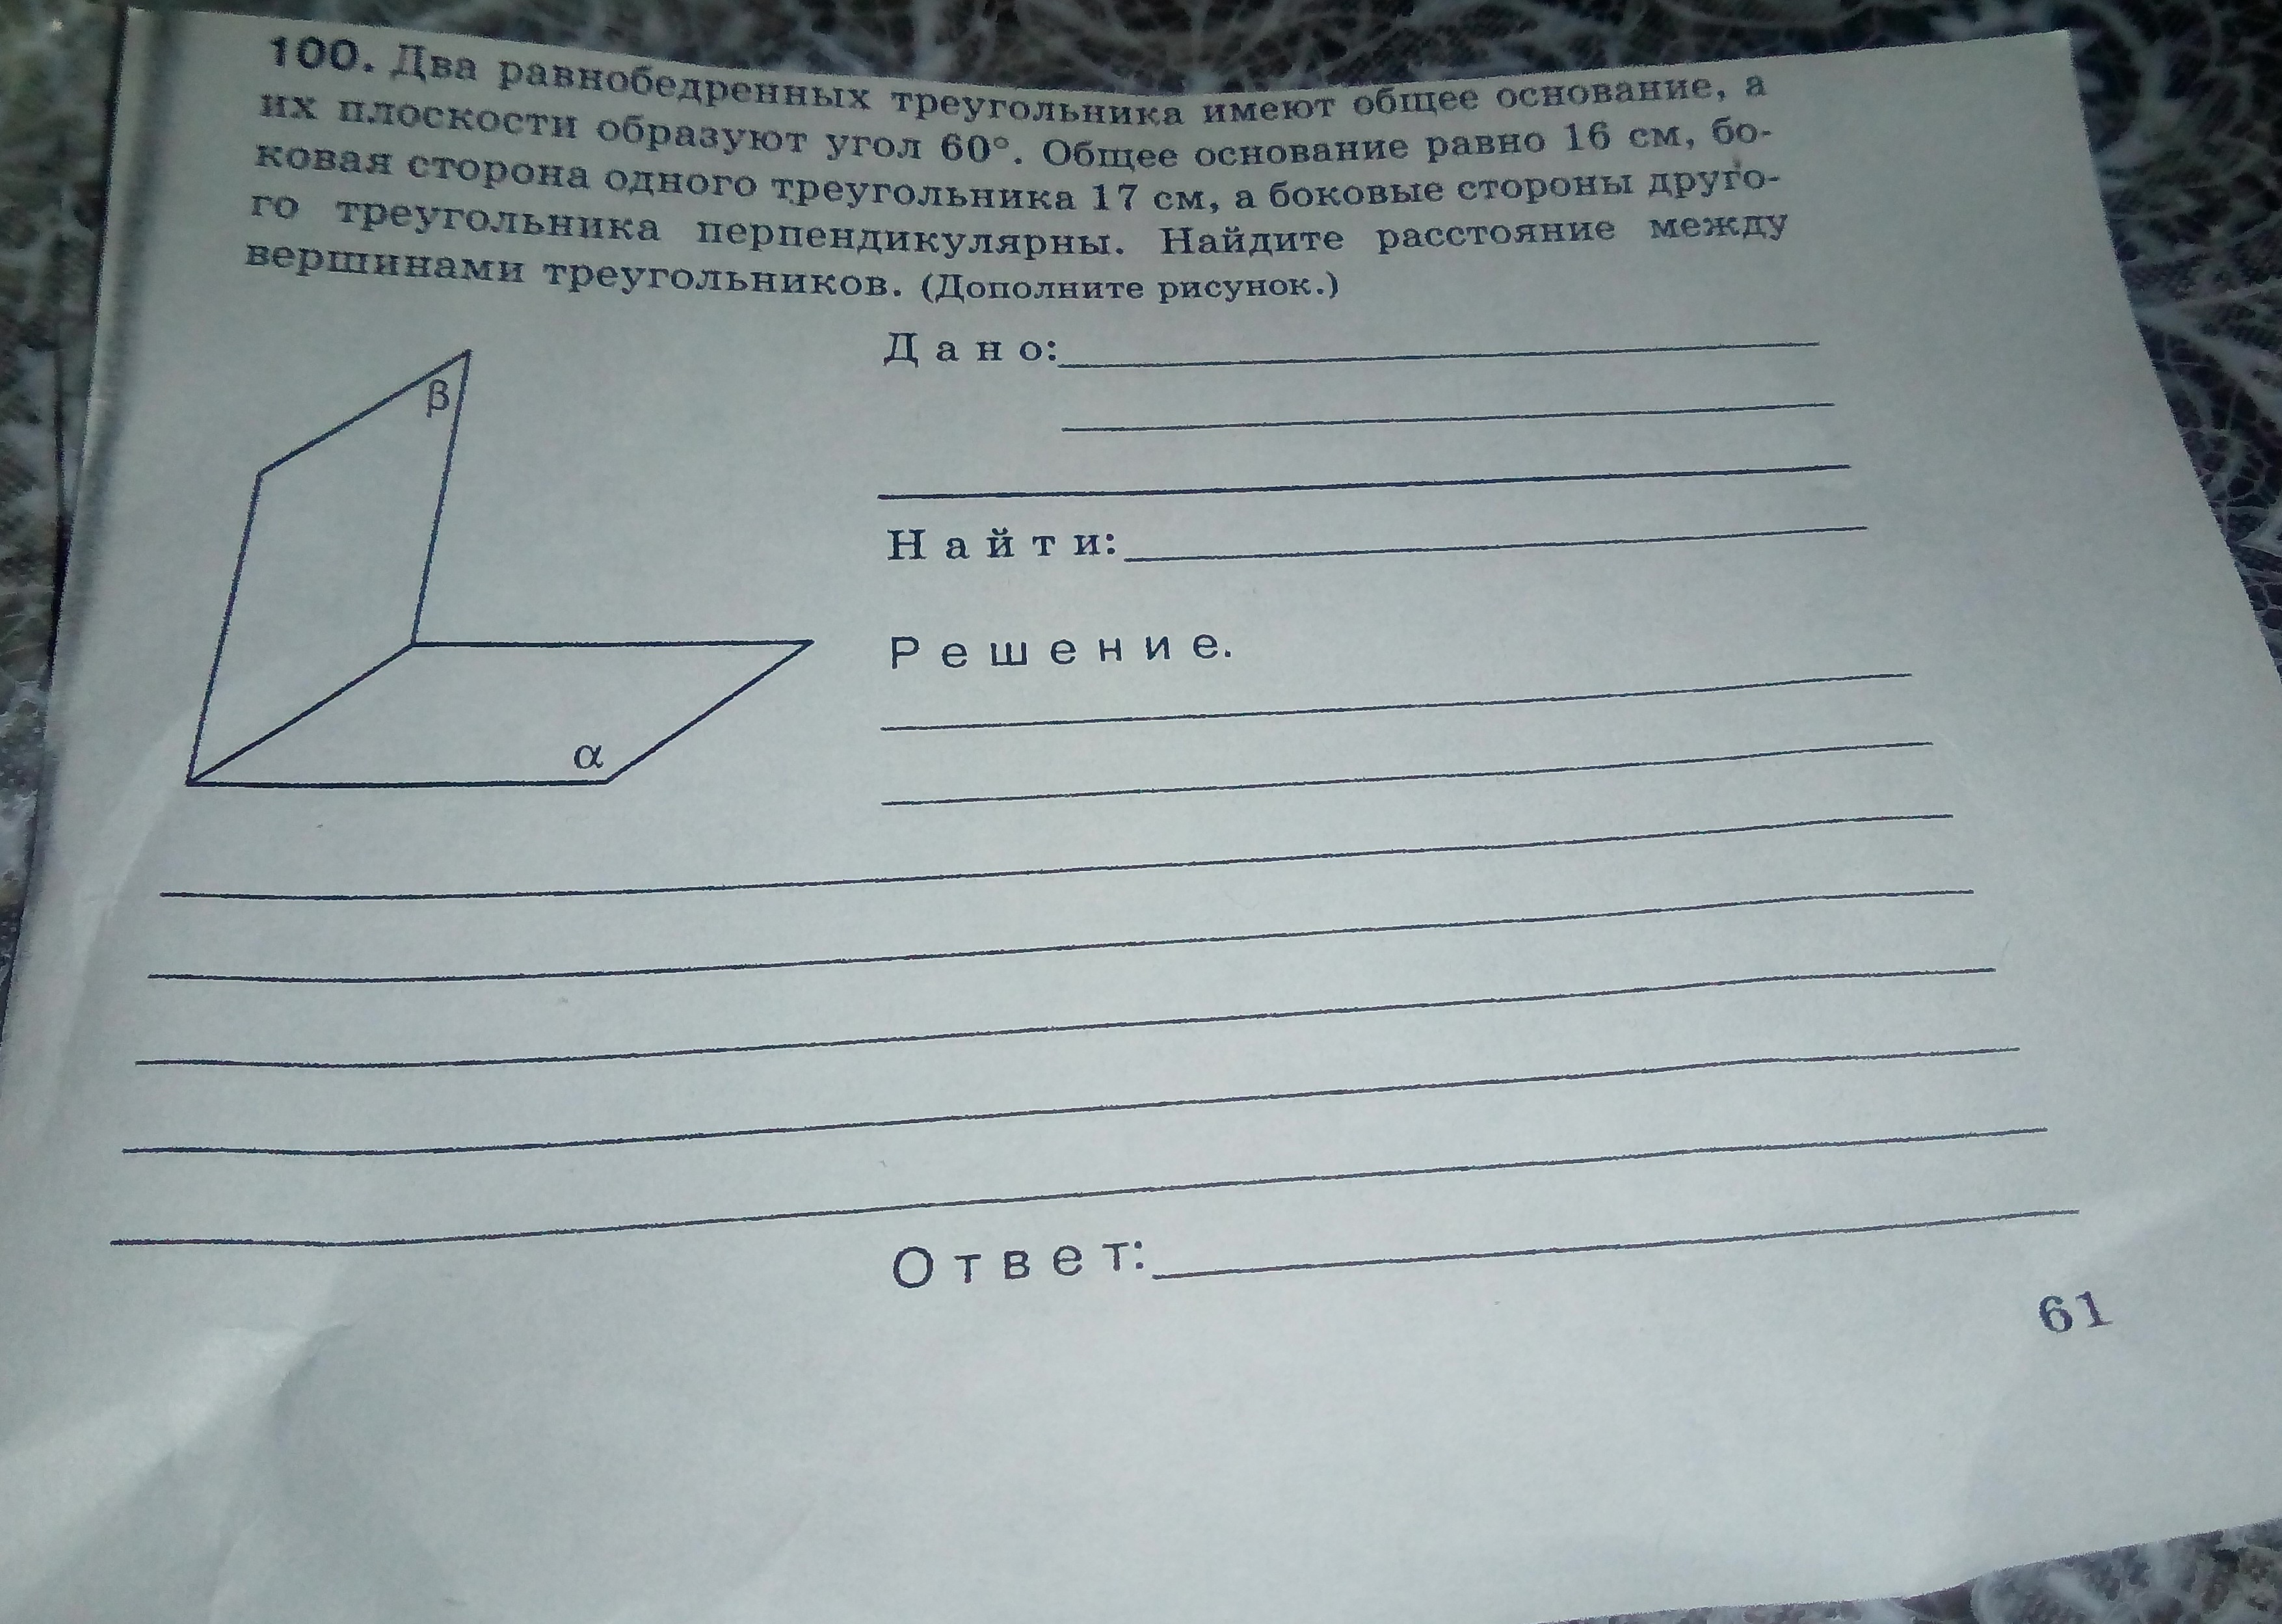 100. Два равнобедренных треугольника имеют общее основание, а
их плоскости образуют угол 60°. Общее основание равно 16 см, бо-
ковая сторона одного треугольника 17 см, а боковые стороны друго-
го треугольника перпендикулярны. Найдите расстояние между
вершинами треугольников. (Дополните рисунок.)
Дано:
β
Найти:
Решение.
α
Ответ:
61